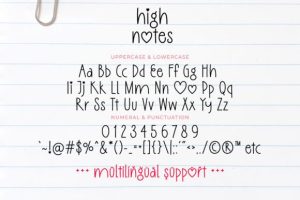 high
notes
UPPERCASE & LOWERCASE
Aa Bb Cc Dd Ee Ff Gg Hh
Ii Jj Kk Ll Mm Nn Oo Pp Qq
Rr Ss Tt Uu Vv Ww Xx Yy Zz
NUMERAL & PUNCTUATION
0 1 2 3 4 5 6 7 8 9
multilingual support